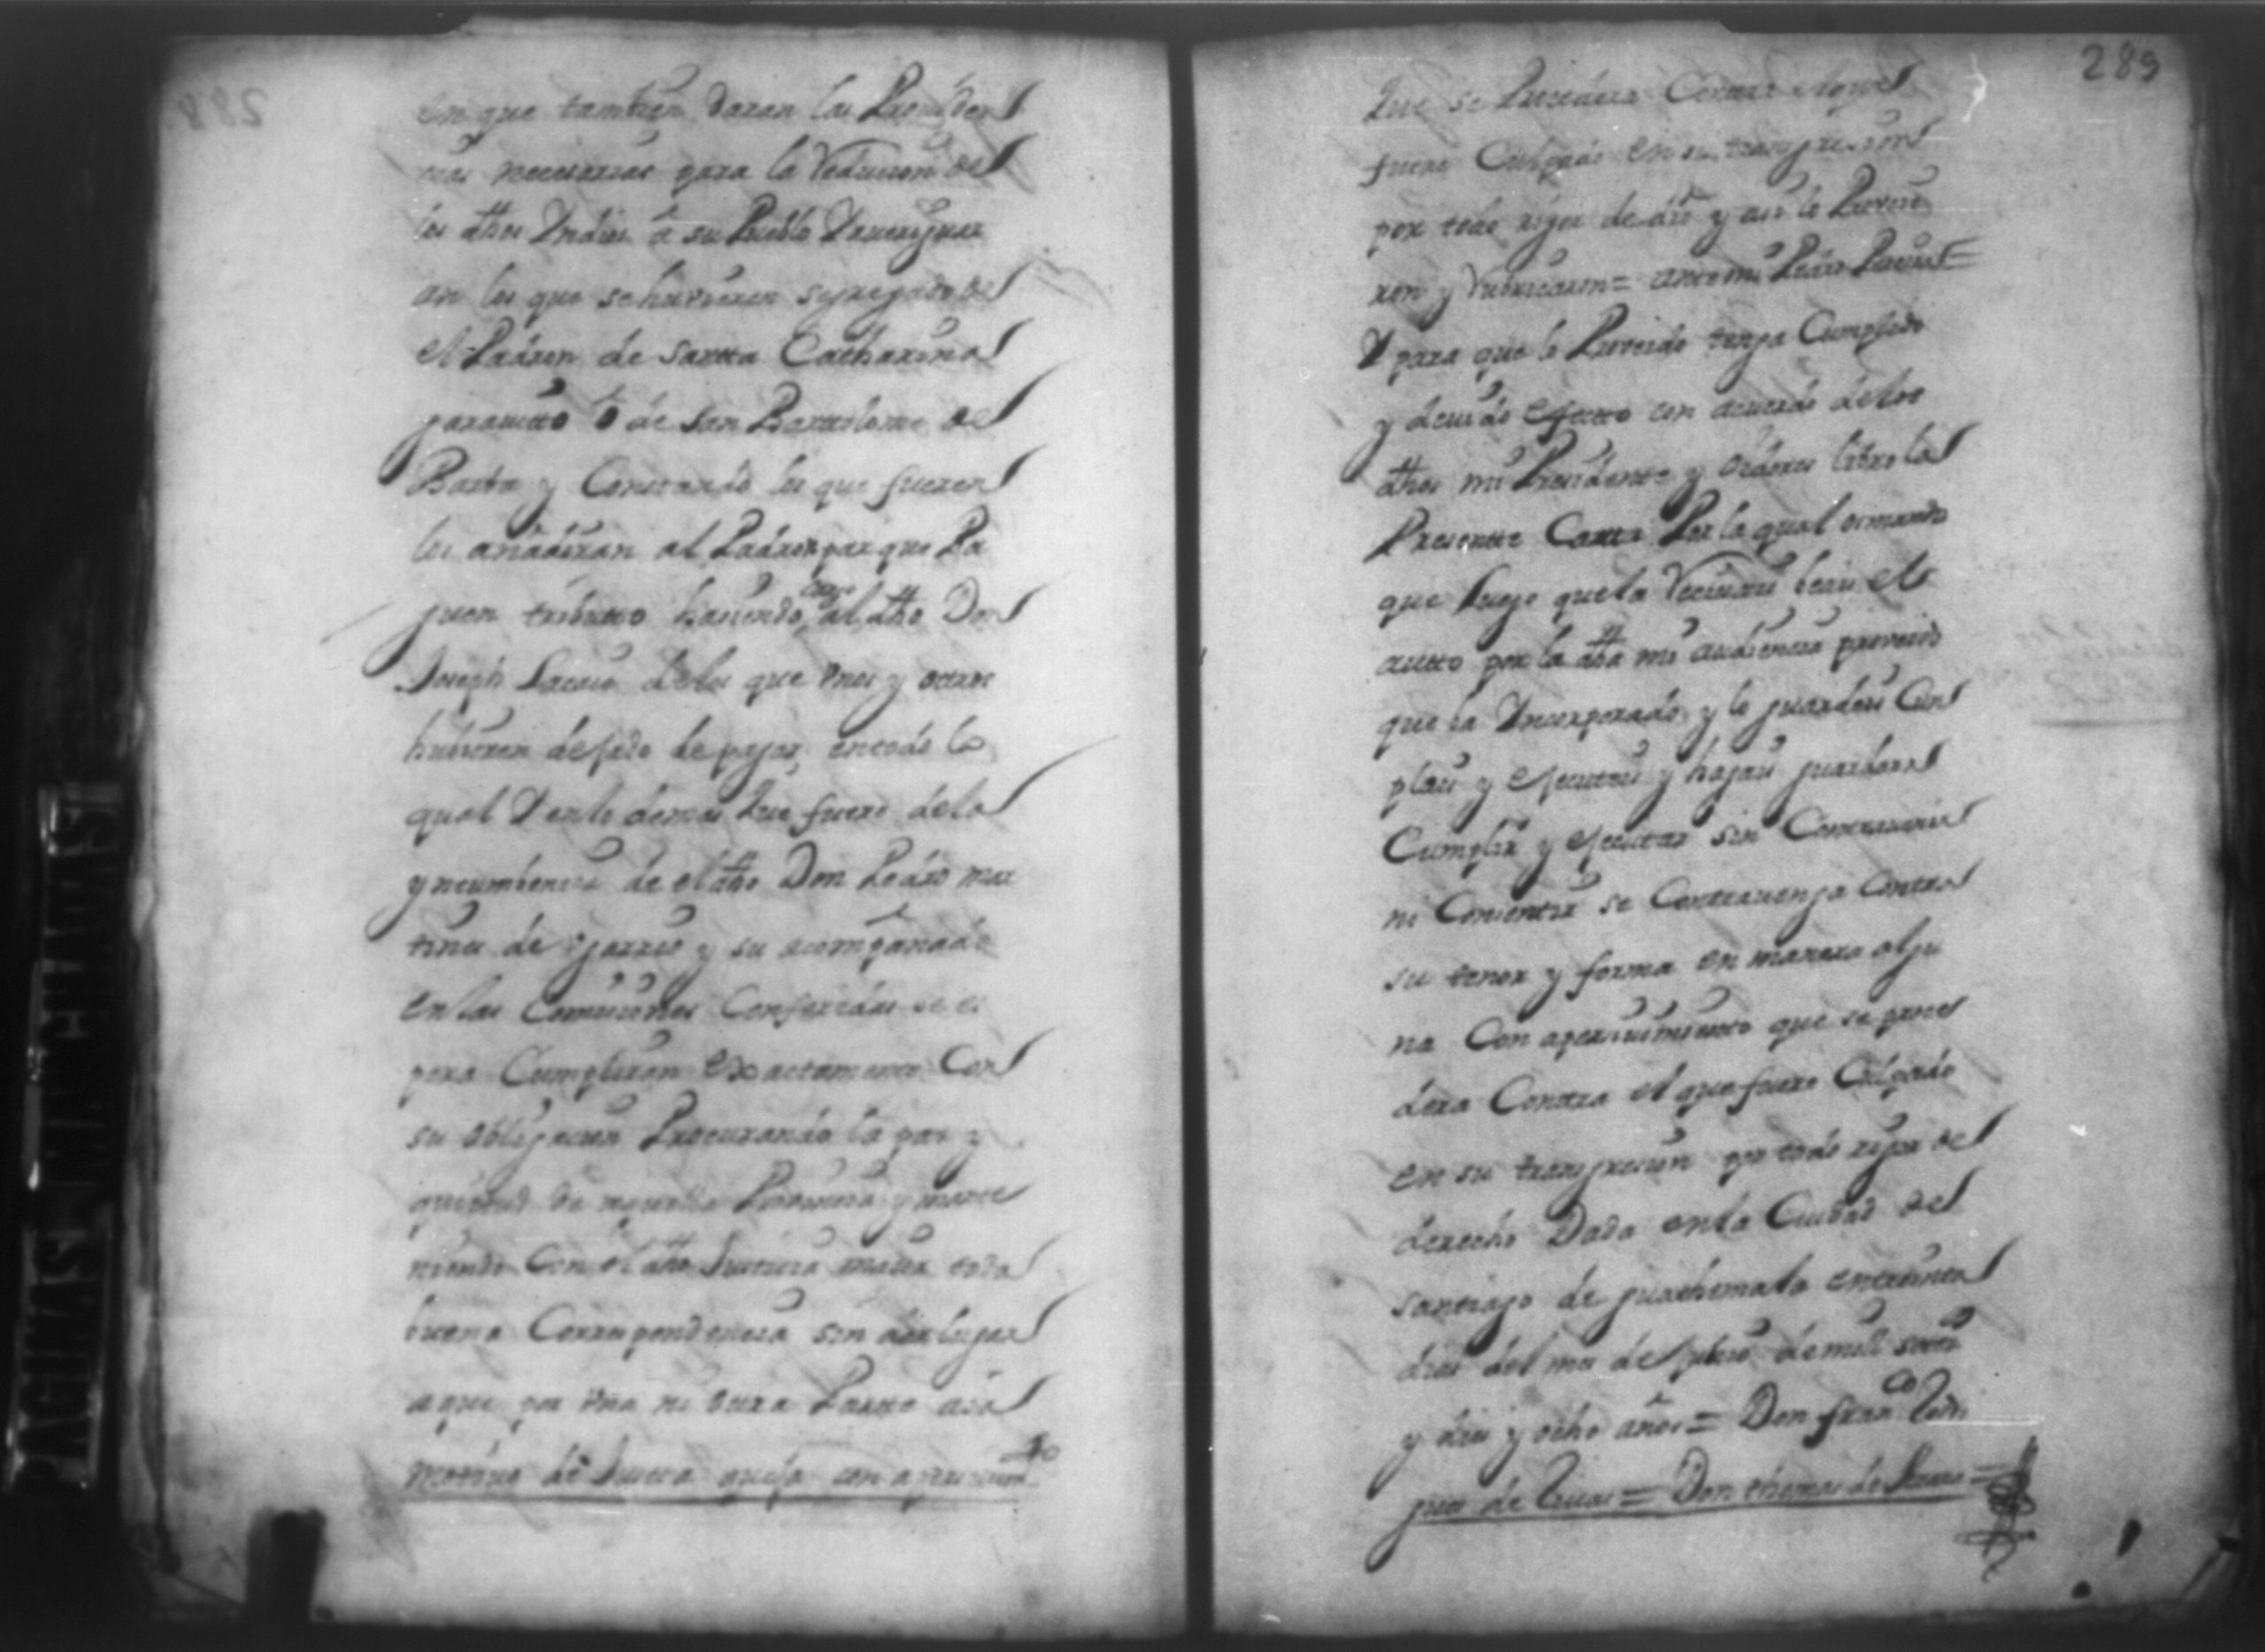 en que tambien daran las Prouiden
cias necesarias para la Reducion de
los dhos Yndios â su Pueblo Yaueriguar
an los que se huvieren segregado de
el Padron de Santta Catharina
para de San Barttolome de
y Constando los que fueren
los añadiran al Padron par que Pa
guen tributto haciendo cargo al dho Don
Joseph de los que unos y otros
hubieren dejado de pagar en todo lo
qual Y en lo demas que fuere de la
yncumbencia de el dho Don Pedro mar
tines de y su acompañado
en las Comiciones Conferidas se es
pera Cumpliran Exactamente Con
su obligacion Procurando la paz y
quietud de aquella Prouincia y mante
niendo Con el dho Justicia maior toda
buena Correspondencia sin dar lugar
a que por vna ni otra Partte aia
motiuo de queja con aperciuimto
289
Que se Procedera Contra el que
fuere Culpado en su transgresion
por todo rigor de dro y asi lo Proveie
ron y Rubricaron = ante mi Pedro Pereira =
Y para que lo Proveido tenga Cumplido
y deuido efectto con acuerdo de los
dhos mi Precidente y oidores libro la
Presentte Cartta Por la qual os mando
que luego que la Reciuais beais el
autto por la dha mi audiencia proveido
que ba Yncorporado y lo guardeis Cun
plais y ejecuteis y hagais guardar
Cumplir y ejecutar sin Contrauenir
ni Concentir se Contrauenga Contra
su tenor y forma en manera algu
na Con aperciuimiento que se proce
dera Contra el que fuere Culpado
en su transgrecion por todo rigor de
derecho Dada en la Ciudad de
santiago de guathemala en treinta
dias del mes de de mill setets
y dies y ocho años = Don franco Rodri
gues de Riuas = Don thomas de Arana =